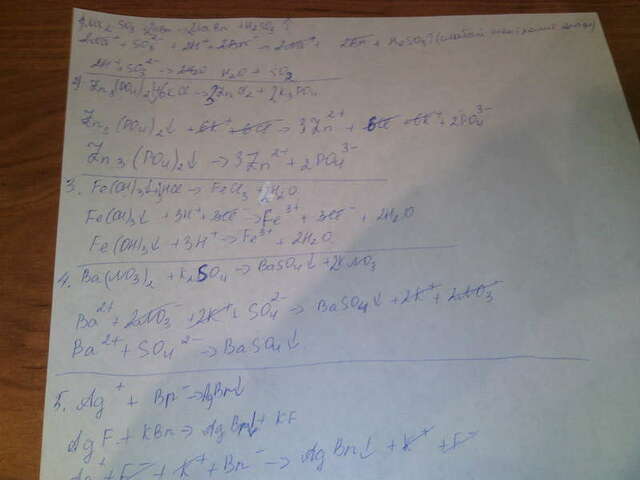 1. Na2SO3 + 2HBr → 2NaBr + H2SO3
2Na⁺ + SO3²⁻ + 2H⁺ + 2Br⁻ → 2Na⁺ + 2Br⁻ + H2SO3 (слабый
2H⁺ + SO3²⁻ → H2O + SO2
2) Zn3(PO4)2 + 6KCl → 3ZnCl2 + 2K3PO4
Zn3(PO4)2↓ + 6K⁺ + 6Cl⁻ → 3Zn²⁺ + 6Cl⁻ + 6K⁺ + 2PO4³⁻
Zn3(PO4)2↓ → 3Zn²⁺ + 2PO4³⁻
3. Fe(OH)3↓ + 3HCl → FeCl3 + 2H2O
Fe(OH)3↓ + 3H⁺ + 3Cl⁻ → Fe³⁺ + 3Cl⁻ + 2H2O
Fe(OH)3↓ + 3H⁺ → Fe³⁺ + 2H2O
4. Ba(NO3)2 + K2SO4 → BaSO4↓ + 2KNO3
Ba²⁺ + 2NO3⁻ + 2K⁺ + SO4²⁻ → BaSO4↓ + 2K⁺ + 2NO3⁻
Ba²⁺ + SO4²⁻ → BaSO4↓
5. Ag⁺ + Br⁻ → AgBr↓
AgF + KBr → AgBr↓ + KF
Ag⁺ + F⁻ + K⁺ + Br⁻ → AgBr↓ + K⁺ + F⁻